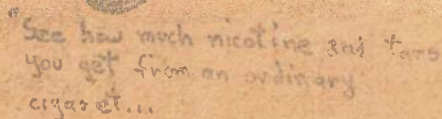 "See how much nicotine and tars
you get from an ordinary
cigaret...